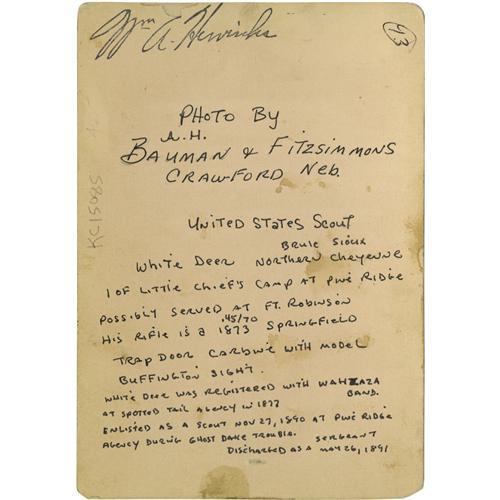 Wm A. Henricks
43
PHOTO By
A.H.
BAUMAN & FITZSIMMONS
CRAWFORD Neb.
KC15085
UNITED STATES SCOUT
BRULE SIOUX
WHITE DEER NORTHERN CHEYENNE
1 OF LITTLE CHIEF'S CAMP AT PINE RIDGE
POSSIBLY SERVED AT FT. ROBINSON
.45/70
HIS RIFLE IS A 1873 SPRINGFIELD
TRAP DOOR CARBINE WITH MODEL
BUFFINGTON SIGHT.
WHITE DEER WAS REGISTERED WITH WAHZAZA
AT SPOTTED TAIL AGENCY IN 1877 BAND.
ENLISTED AS A SCOUT NOV 27, 1890 AT PINE RIDGE
AGENCY DURING GHOST DANCE TROUBLE. SERGEANT
DISCHARGED AS A MAY 26, 1891